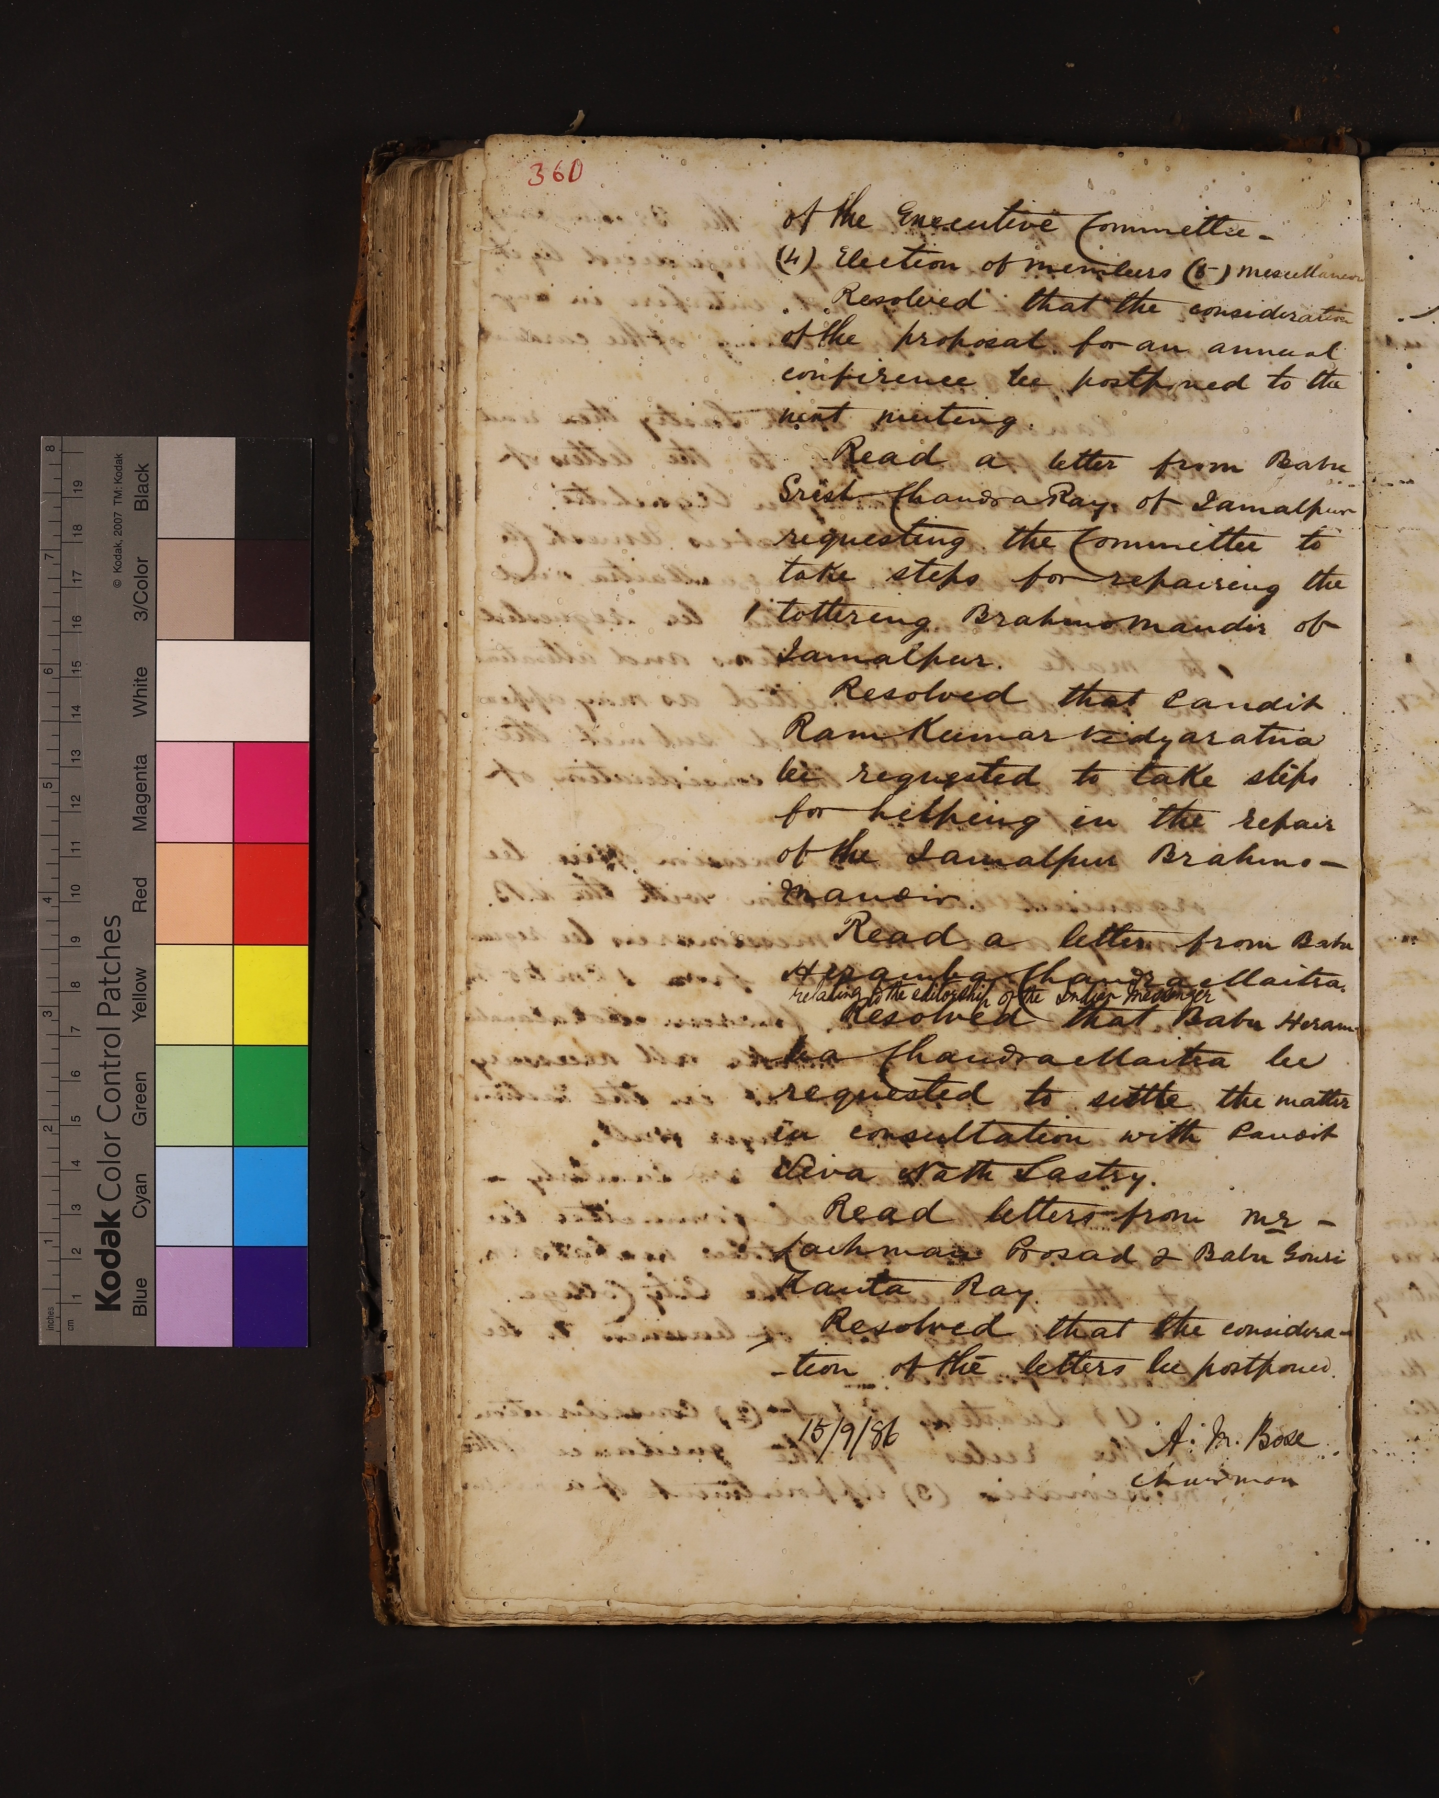 360
of the Executive Committee -
(4) Election of members (5) miscellaneous
Resolved that the consideration
of the proposal for an annual
conference be postponed to the
next meeting.
Read a letter from Babu
Srish Chandra Ray of Jamalpur
requesting the Committee to
take steps for repairing the
tottering Brahmo Mandir of
Jamalpur.
Resolved that Pandit
Ram Kumar Vidyaratna
be requested to take steps
for helping in the repair
of the Jamalpur Brahmo -
Mandir.
Read a letter from Babu
Heramba Chandra Maitra.
relating to the editorship of the Indian Messenger
Resolved that Babu Heram-
ba Chandra Maitra be
requested to settle the matter
in consultation with Pandit
Siva Nath Sastry.
Read letters from Mr -
Lachman Prosad & Babu Gouri
Kanta Ray.
Resolved that the considera-
-tion of the letters be postponed.
15/9/86
A. M. Bose
Chairman
Kodak Color Control Patches
© Kodak, 2007 TM: Kodak
Blue Cyan Green Yellow Red Magenta White 3/Color Black
inches 1 2 3 4 5 6 7 8
cm 1 2 3 4 5 6 7 8 9 10 11 12 13 14 15 16 17 18 19